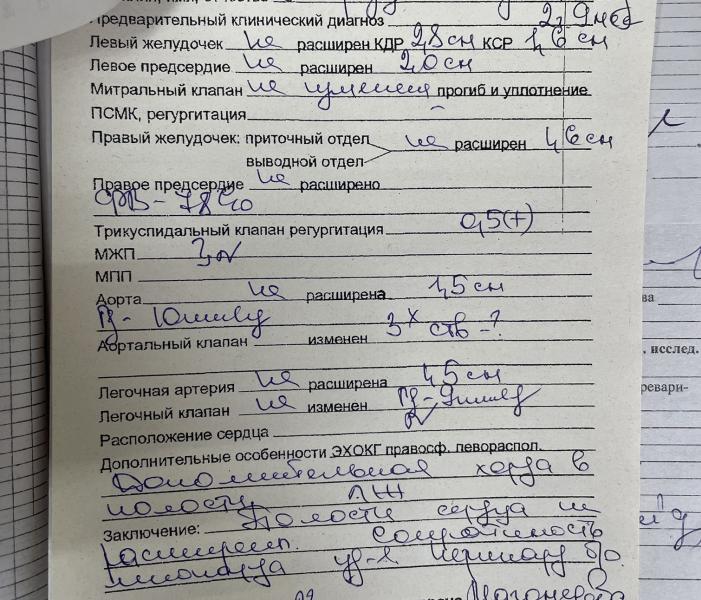 Предварительный клинический диагноз
Левый желудочек не расширен КДР 2,8 см КСР 1,6 см
Левое предсердие не расширен 2,0 см
Митральный клапан не изменен прогиб и уплотнение
ПСМК, регургитация
Правый желудочек: приточный отдел не расширен 1,6 см
выводной отдел
Правое предсердие не расширено
ФВ - 78%
Трикуспидальный клапан регургитация 0,5(+)
МЖП N
МПП
Аорта не расширена 1,5 см
Pg - 10
Аортальный клапан изменен 3х ств-?
Легочная артерия не расширена 1,5 см
Легочный клапан не изменен Pg - 9
Расположение сердца N
Дополнительные особенности ЭХОКГ правосф. певораспол.
Дополнительная хорда в
полости ЛЖ
Заключение: Полости сердца не
расширен. Сократимость
миокарда уд-я
, исслед.
ревари-